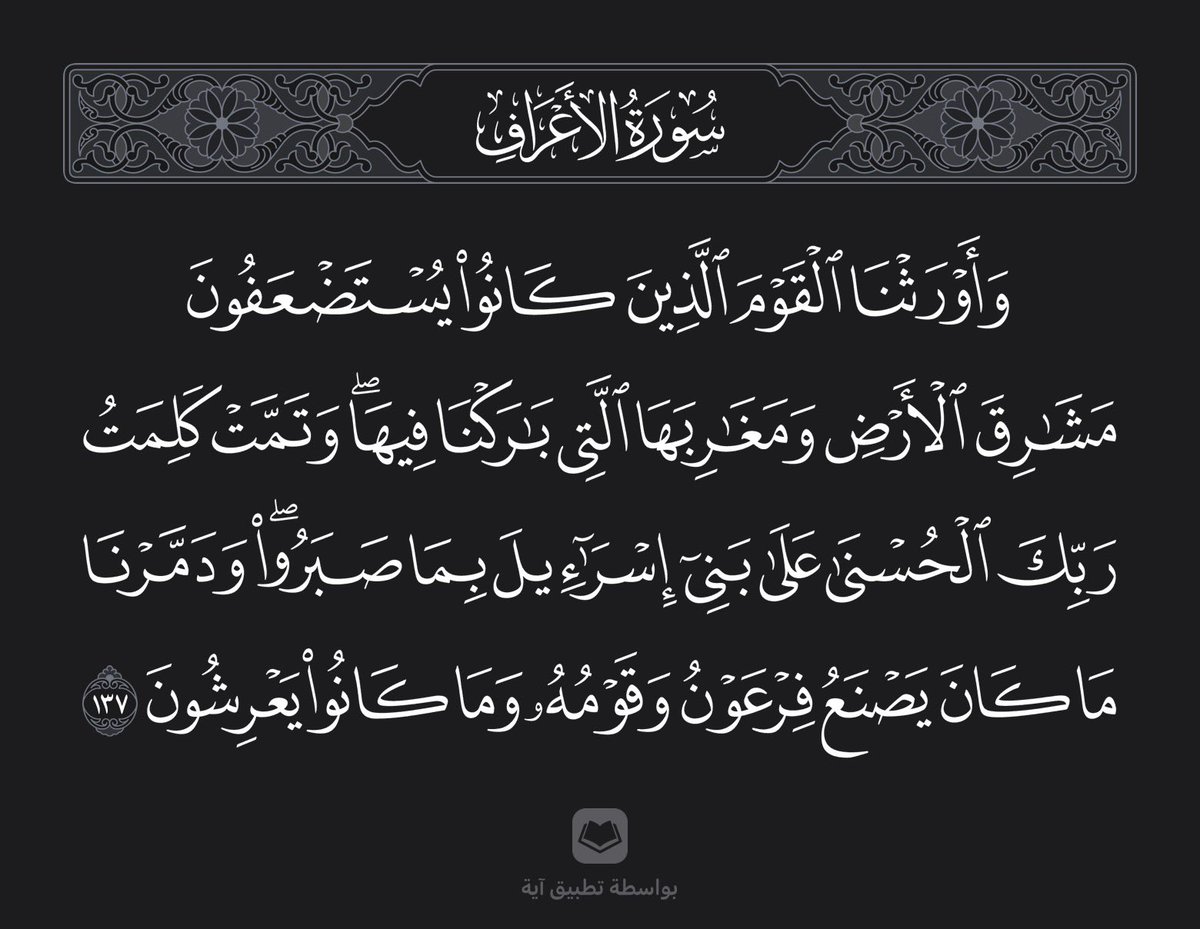 سُورَةُ الأَعْرَافِ
وَأَوْرَثْنَا ٱلْقَوْمَ ٱلَّذِينَ كَانُوا۟ يُسْتَضْعَفُونَ
مَشَـٰرِقَ ٱلْأَرْضِ وَمَغَـٰرِبَهَا ٱلَّتِى بَـٰرَكْنَا فِيهَا ۖ وَتَمَّتْ كَلِمَتُ
رَبِّكَ ٱلْحُسْنَىٰ عَلَىٰ بَنِىٓ إِسْرَٰٓءِيلَ بِمَا صَبَرُوا۟ ۖ وَدَمَّرْنَا
مَا كَانَ يَصْنَعُ فِرْعَوْنُ وَقَوْمُهُۥ وَمَا كَانُوا۟ يَعْرِشُونَ ١٣٧
بواسطة تطبيق آية